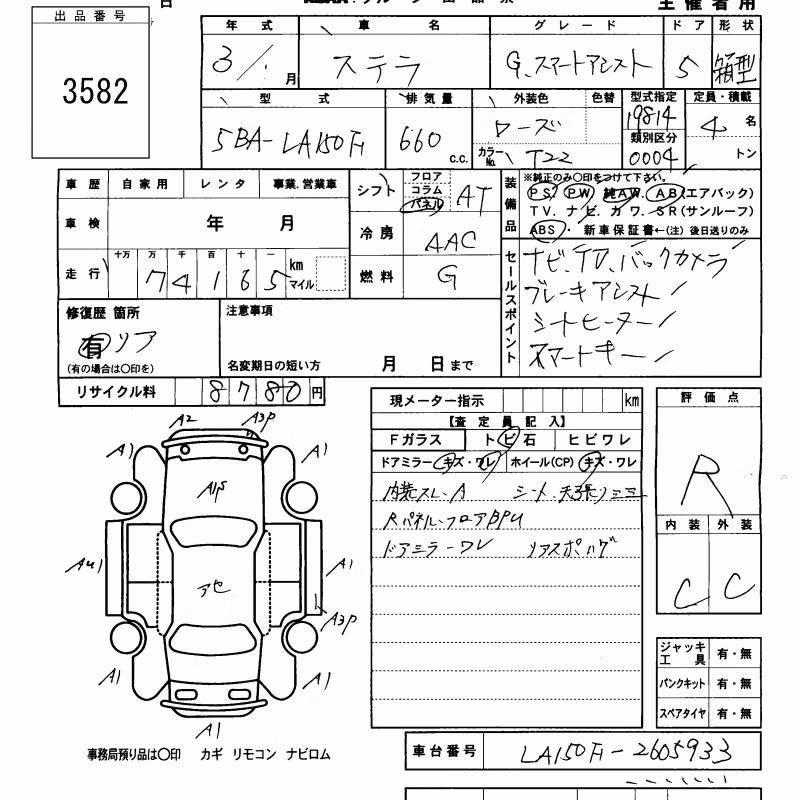 日
主催者用
出品番号
3582
年式 車名 グレード ドア 形状
3/1月 ステラ G、スマートアシスト 5 箱型
型式 排気量 外装色 色替 型式指定 定員・積載
5BA-LA150F 660c.c. ローズ 19814 4名
カラーNo. T22 類別区分 0004 トン
車歴 自家用 レンタ 事業.営業車
車検 年 月
走行 十万 万 千 百 十 一 km マイル
74165
シフト フロア コラム パネル AT
冷房 AAC
燃料 G
装備品
※純正のみ○印をつけて下さい。
P.S. P.W. 純A.W. A.B(エアバック)
T.V. ナビ. カワ. S R(サンルーフ)
ABS・ 新車保証書←(注)後日送りのみ
セールスポイント
ナビ、TV、バックカメラ
ブレーキアシスト
シートヒーター
スマートキー
修復歴 箇所
有 リア
(有の場合は○印を)
注意事項
名変期日の短い方 月 日まで
リサイクル料 8780円
現メーター指示 km
【査定員記入】
Fガラス トビ石 ヒビワレ
ドアミラー キズ・ワレ ホイール(CP) キズ・ワレ
内装スレ.A シート、天張りシミ
Rパネル・フロアBPU
ドアミラーワレ
評価点
R
内装 外装
C C
A2 A3P
A1 A1
A1P
AU1 アセ A1
A3P
A1 A1
A1
ジャッキ工具 有・無
パンクキット 有・無
スペアタイヤ 有・無
事務局預り品は○印 カギ リモコン ナビロム
車台番号 LA150F-2605933